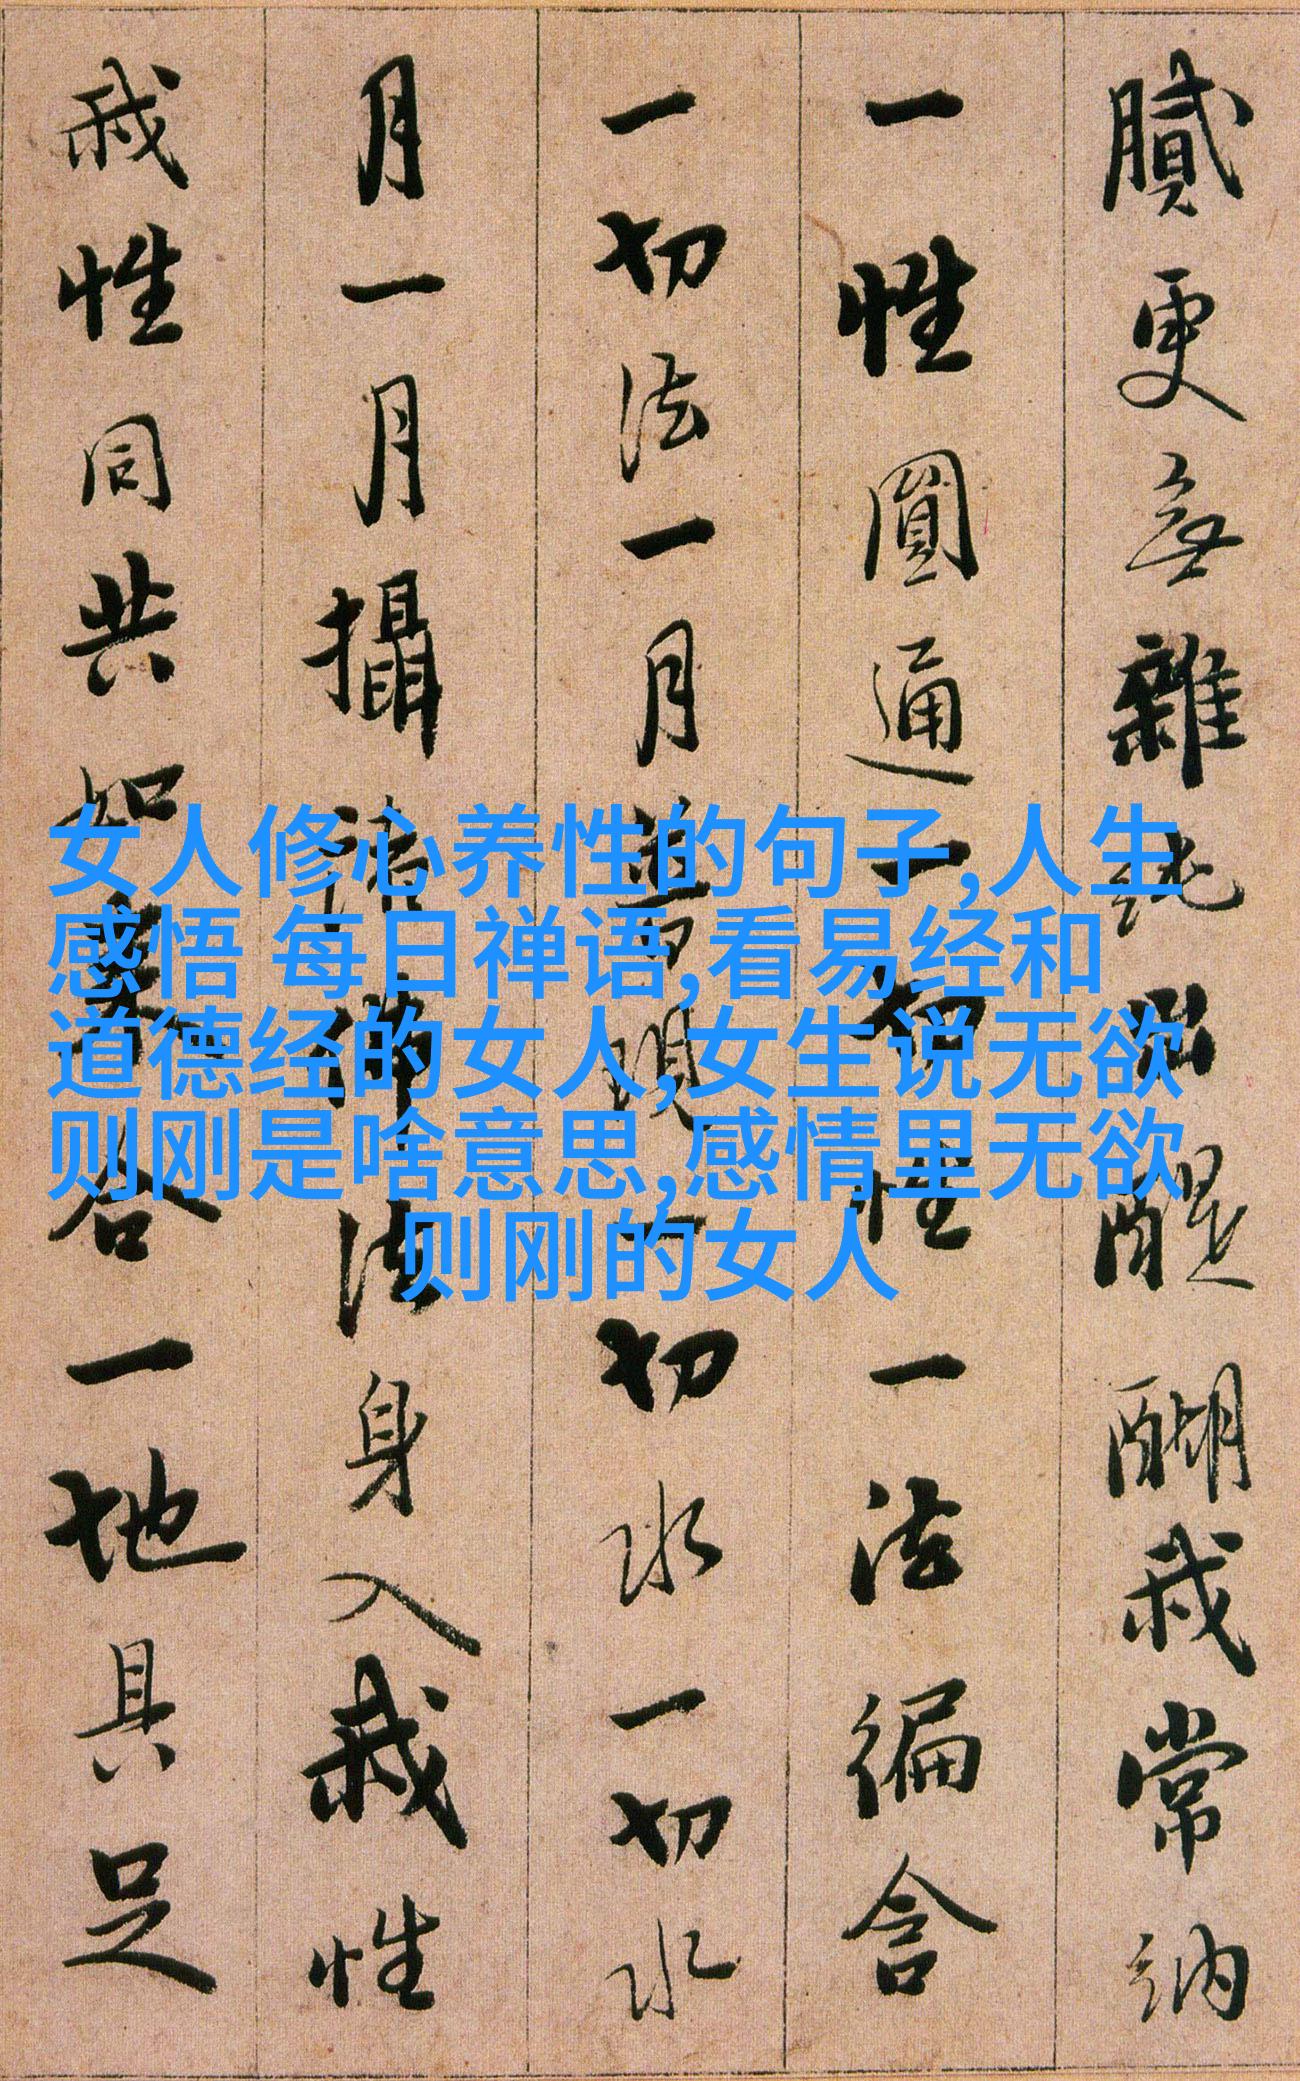 膩更無雜純出醍醐我常納
一性圓通一切性一法徧含
一切法一月普現一切水一切水
月一月攝諸佛法身入我性
我性同共如来合一地具足
女人修心养性的句子,人生
感悟 每日禅语,看易经和
道德经的女人,女生说无欲
则刚是啥意思,感情里无欲
则刚的女人